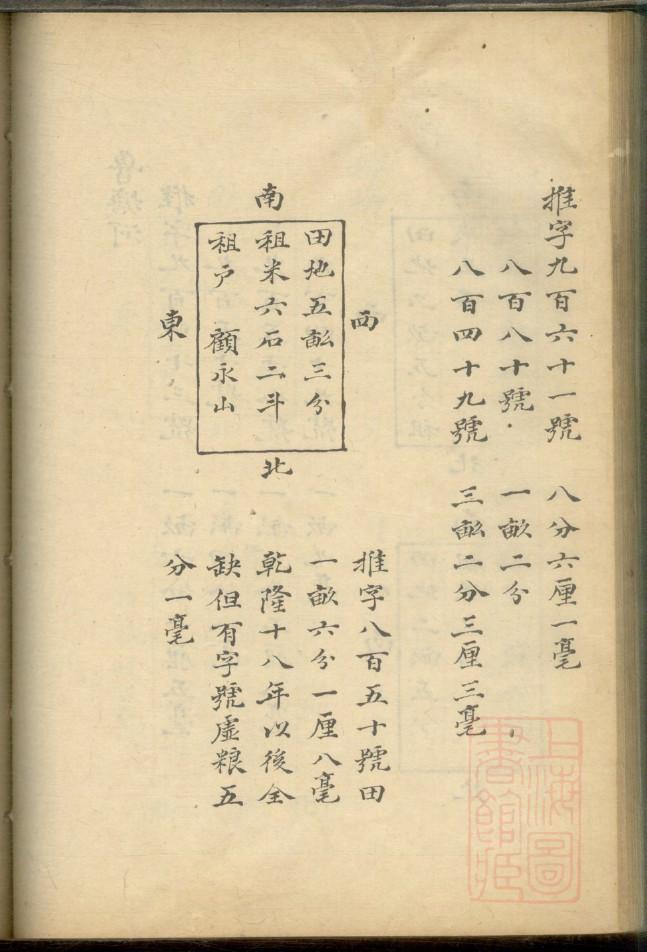 推字九百六十一號 八分六厘一毫
八百八十號 一畝二分
八百四十九號 三畝二分三厘三毫
西
南
北
田地五畝三分
租米六石二斗
租戶 顧永山
東
推字八百五十號田
一畝六分一厘八毫
乾隆十八年以後全
缺但有字號虛粮五
分一毫
上海圖
書館藏